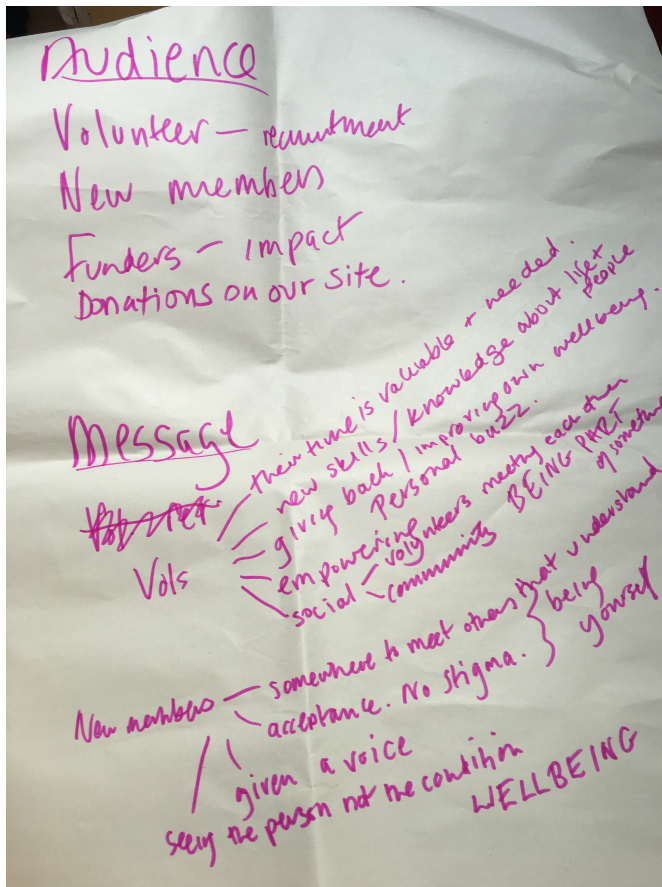 Audience
Volunteer — recruitment
New members
Funders — impact
Donations on our site.
Message
Vols
their time is valuable + needed.
new skills / knowledge about life + people
giving back / improving own wellbeing.
Personal buzz.
empowering
social - volunteers meeting each other
- community BEING PART of something
New members — somewhere to meet others that understand
acceptance. No stigma. } being yourself
given a voice
seeing the person not the condition
WELLBEING